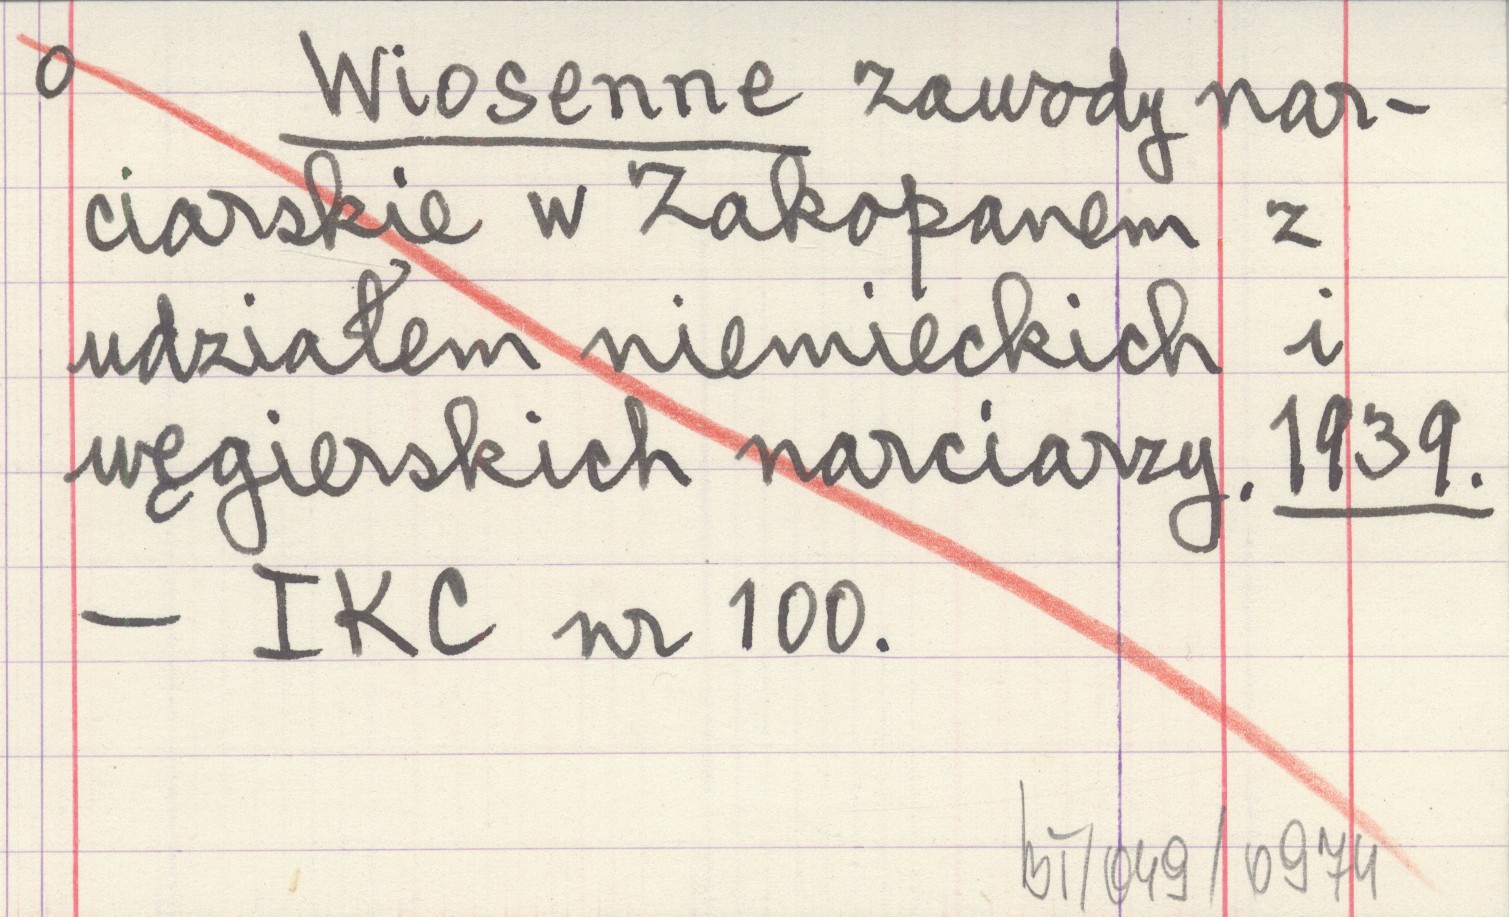 o Wiosenne zawody nar-
ciarskie w Zakopanem z
udziałem niemieckich i
węgierskich narciarzy. 1939.
— IKC nr 100.
/049/0974